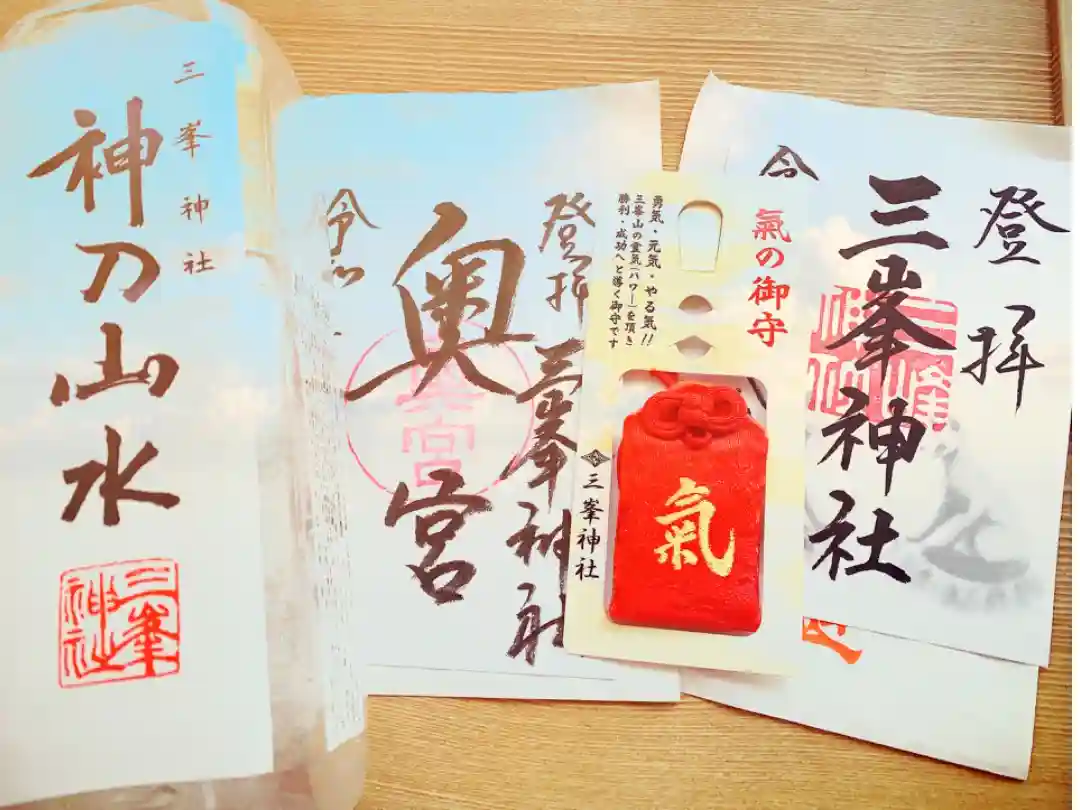 三峯神社
神乃山水
三峯
神社
登拝 三峯神社
奥宮
奥宮
令和
氣の御守
勇気・元気・やる気!!
三峯山の霊気(パワー)を頂き
勝利・成功へと導く御守です
三峯神社
氣
登拝
三峯神社
令